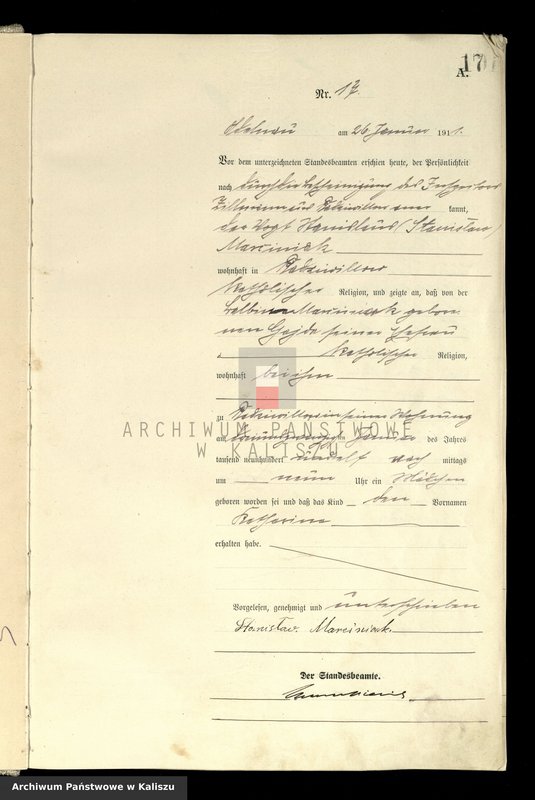 17
A.
Nr. 17.
Adelnau am 26 Januar 1911.
Vor dem unterzeichneten Standesbeamten erschien heute, der Persönlichkeit
nach durch Bescheinigung des
kannt,
der Vogt Stanislaus (Stanislaw)
Marciniak
wohnhaft in
katholischer Religion, und zeigte an, daß von der
Marciniak gebor
nen Gajda seiner Ehefrau
katholischer Religion,
wohnhaft bei ihm
zu in seiner Wohnung
am Januar des Jahres
tausend neunhundert und elf nach mittags
um neun Uhr ein Mädchen
geboren worden sei und daß das Kind den Vornamen
Katharina
erhalten habe.
Vorgelesen, genehmigt und unterschrieben
Stanisław. Marciniak.
Der Standesbeamte.
ARCHIWUM PAŃSTWOWE
W KALISZU
Archiwum Państwowe w Kaliszu